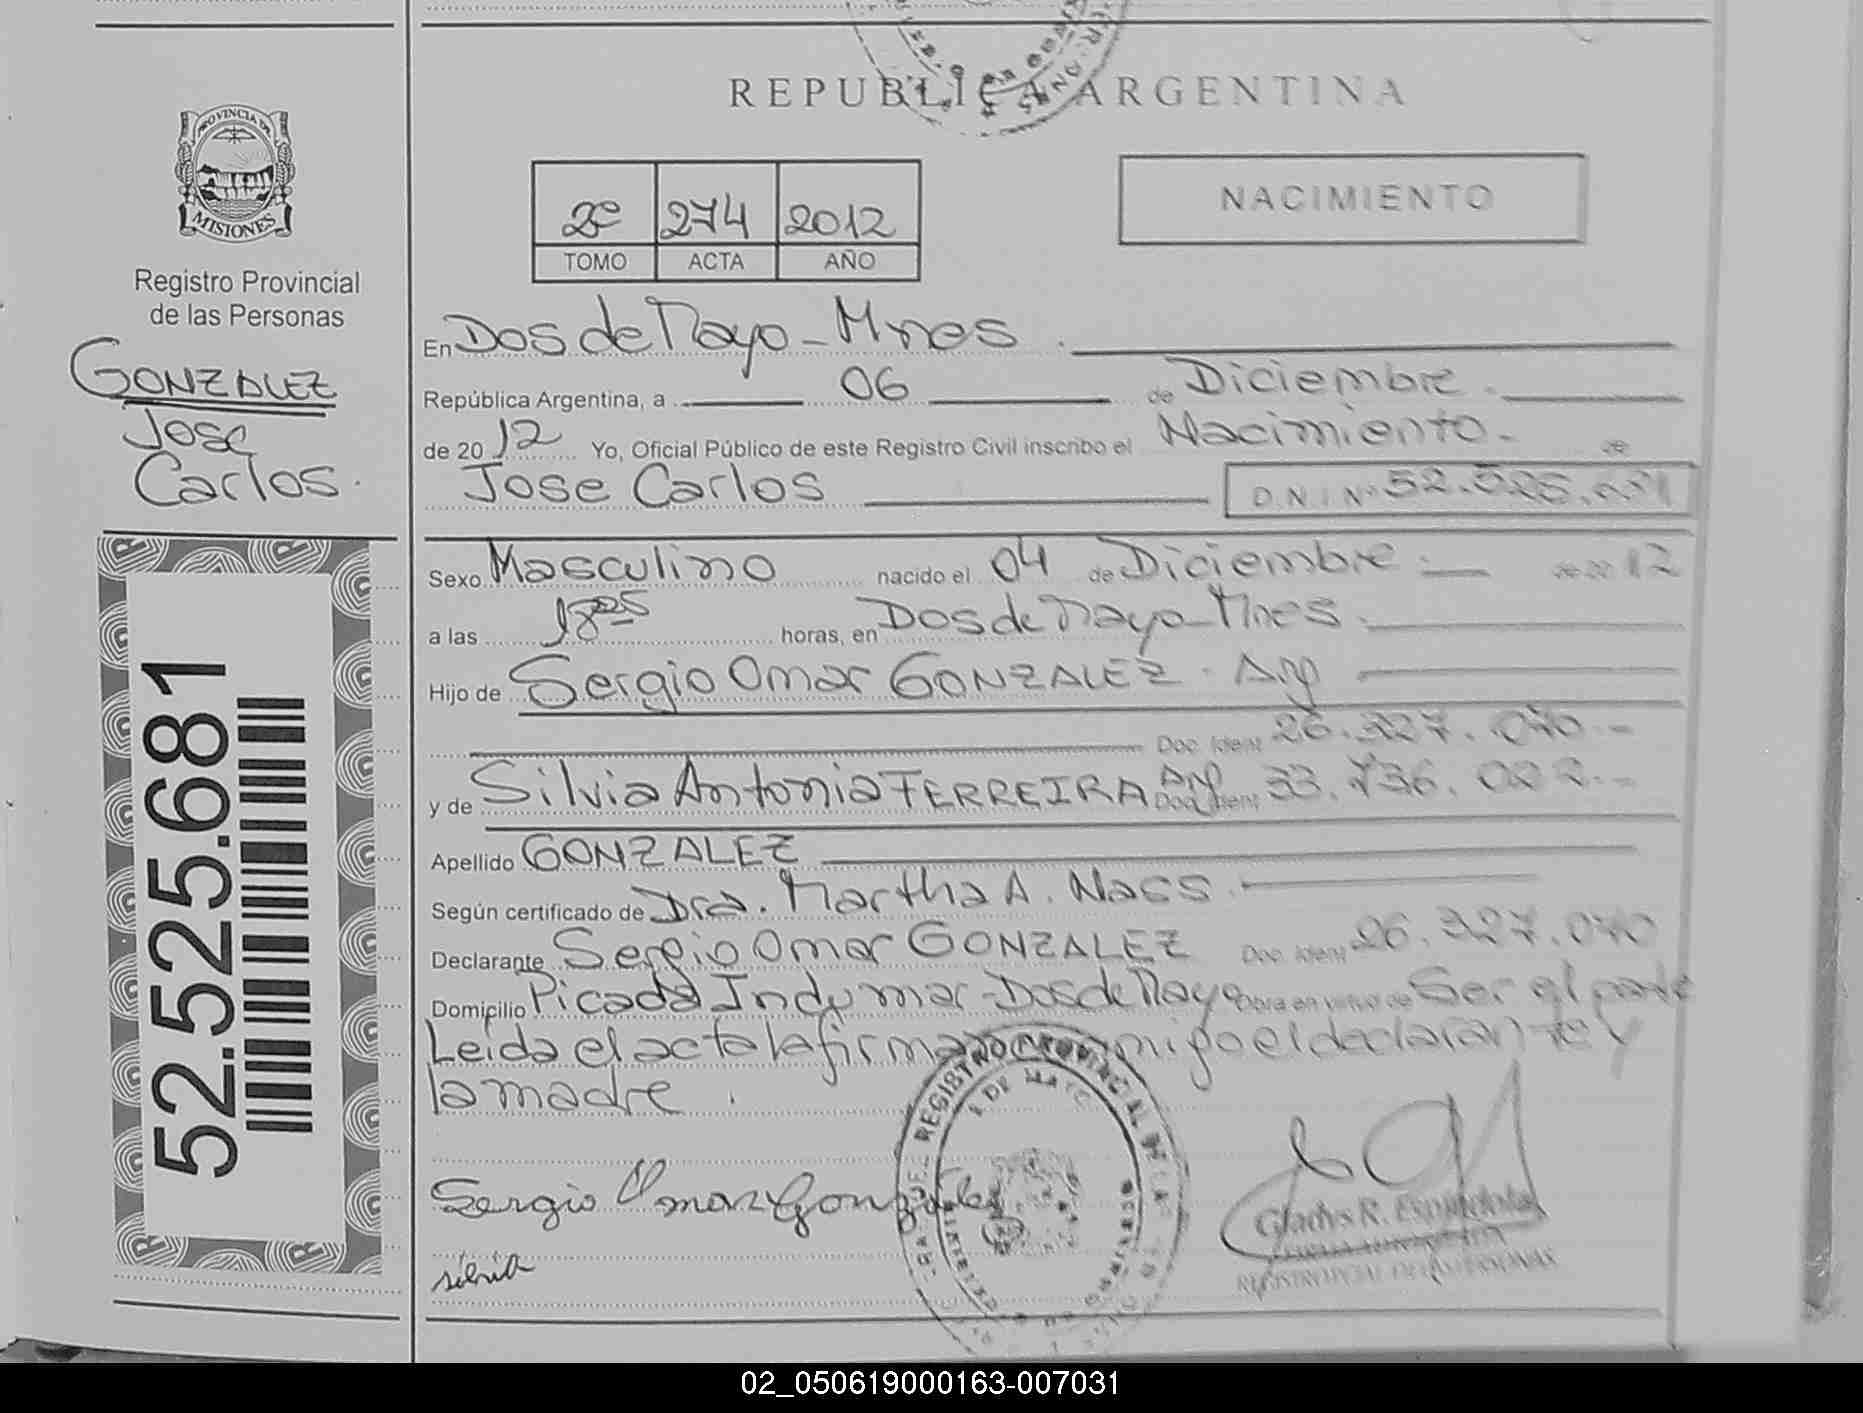 REPUBLICA ARGENTINA
PROVINCIA DE
MISIONES
Registro Provincial
de las Personas
GONZALEZ
Jose
Carlos.
52.525.681
2º 274 2012
TOMO ACTA AÑO
NACIMIENTO
En Dos de Mayo - Mnes.
República Argentina, a 06 de Diciembre.
de 2012 Yo, Oficial Público de este Registro Civil inscribo el Nacimiento. de
Jose Carlos D.N.I Nº 52.525.681
Sexo Masculino nacido el 04 de Diciembre. de 2012
a las 18 25 horas, en Dos de Mayo - Mnes.
Hijo de Sergio Omar GONZALEZ. Arg
Doc. Ident 26.327.070.-
y de Silvia Antonia FERREIRA Arg Doc. Ident 33.736.022.-
Apellido GONZALEZ
Según certificado de Dra. Martha A. Nass.
Declarante Sergio Omar GONZALEZ Doc. Ident 26.327.070
Domicilio Picada Indumar - Dos de Mayo Obra en virtud de Ser el padre
Leida el acta la firman conmigo el declarante y
la madre.
Sergio Omar Gonzalez
silvia
REGISTRO PROVINCIAL DE LAS
2 DE MAYO
Gladys R. Espindola
REGISTRO PCIAL. DE LAS PERSONAS
02_050619000163-007031